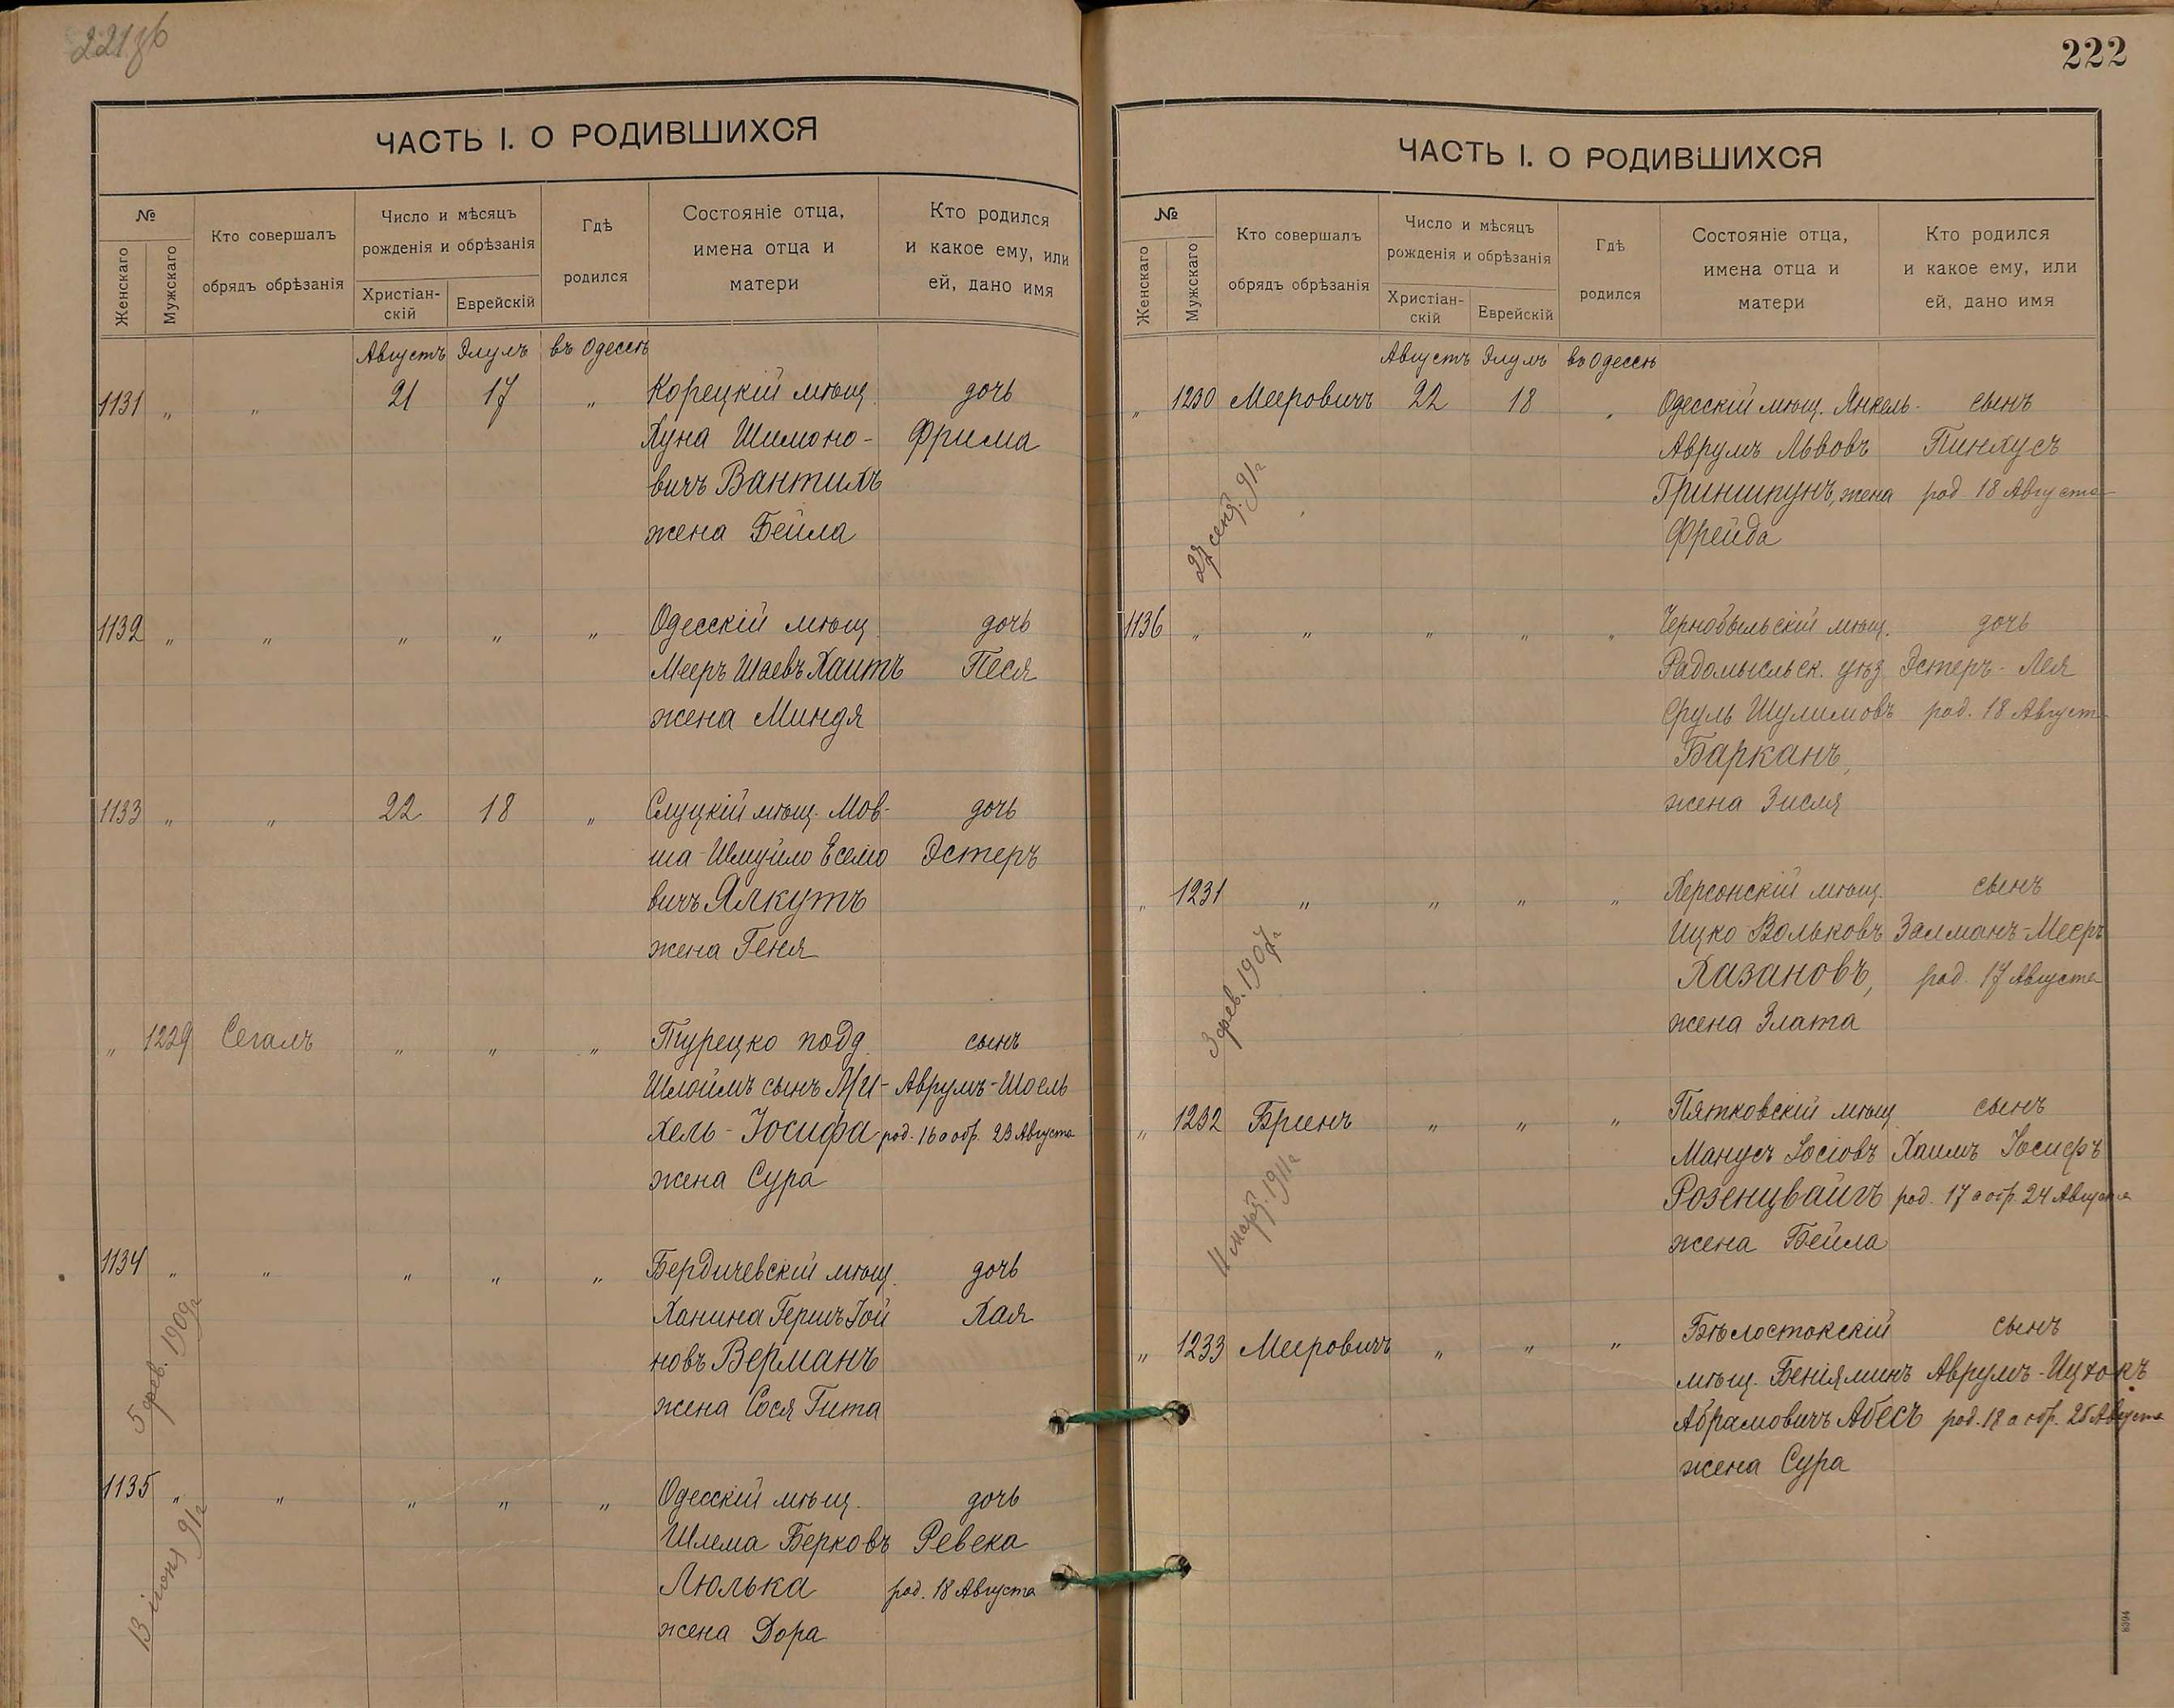 221 об
ЧАСТЬ I. О РОДИВШИХСЯ
№
Женскаго
Мужскаго
Кто совершалъ
обрядъ обрѣзанія
Число и мѣсяцъ
рожденія и обрѣзанія
Христіан-
скій
Еврейскій
Гдѣ
родился
Состояніе отца,
имена отца и
матери
Кто родился
и какое ему, или
ей, дано имя
Августъ Элулъ въ Одессѣ
1131 " " 21 17 " Корецкій мѣщ. дочь
Хуна Шимоно- Фрима
вичъ Вантихъ
жена Бейла
1132 " " " " " Одесскій мѣщ. дочь
Мееръ Шаевъ Хаитъ Песя
жена Миндя
1133 " " 22 18 " Слуцкій мѣщ. Мов- дочь
ша-Шмуйло Есело Эстеръ
вичъ Ялкутъ
жена Геня
" 1229 Сегалъ " " " Турецко подд. сынъ
Шлоймъ сынъ Ми- Аврумъ-Шоель
хель-Іосифа род. 16 а обр. 23 Августа
жена Сура
1134 " " " " " Бердичевскій мѣщ. дочь
Ханина Гершъ Іой Хая
новъ Верманъ
жена Сося Гита
5 фев. 1909 г
1135 " " " " " Одесскій мѣщ. дочь
Шлема Берковъ Ревека
Люлька род. 18 Августа
жена Дора
13 іюня 91 г
222
ЧАСТЬ I. О РОДИВШИХСЯ
№
Женскаго
Мужскаго
Кто совершалъ
обрядъ обрѣзанія
Число и мѣсяцъ
рожденія и обрѣзанія
Христіан-
скій
Еврейскій
Гдѣ
родился
Состояніе отца,
имена отца и
матери
Кто родился
и какое ему, или
ей, дано имя
Августъ Элулъ въ Одессѣ
" 1230 Мееровичъ 22 18 " Одесскій мѣщ. Янкель- сынъ
Аврумъ Львовъ Пинхусъ
Гриншпунъ, жена род. 18 Августа
Фрейда
27 сент. 91 г
1136 " " " " " Чернобыльскій мѣщ. дочь
Радомысльск. уѣз. Эстеръ-Лея
Сруль Шулимовъ род. 18 Август
Барканъ,
жена Зисля
" 1231 " " " " Херсонскій мѣщ. сынъ
Ицко Вольковъ Залманъ-Мееръ
Хазановъ, род. 17 Августа
жена Злата
3 фев. 1907 г
" 1232 Бринъ " " " Пятковскій мѣщ. сынъ
Манусъ Іосіовъ Хаимъ Іосифъ
Розенцвайгъ род. 17 а обр. 24 Августа
жена Бейла
11 март. 1911 г
" 1233 Мееровичъ " " " Бѣлостокскій сынъ
мѣщ. Беніяминъ Аврумъ-Ицхокъ
Абрамовичъ Абесъ род. 18 а обр. 25 Августа
жена Сура
8394